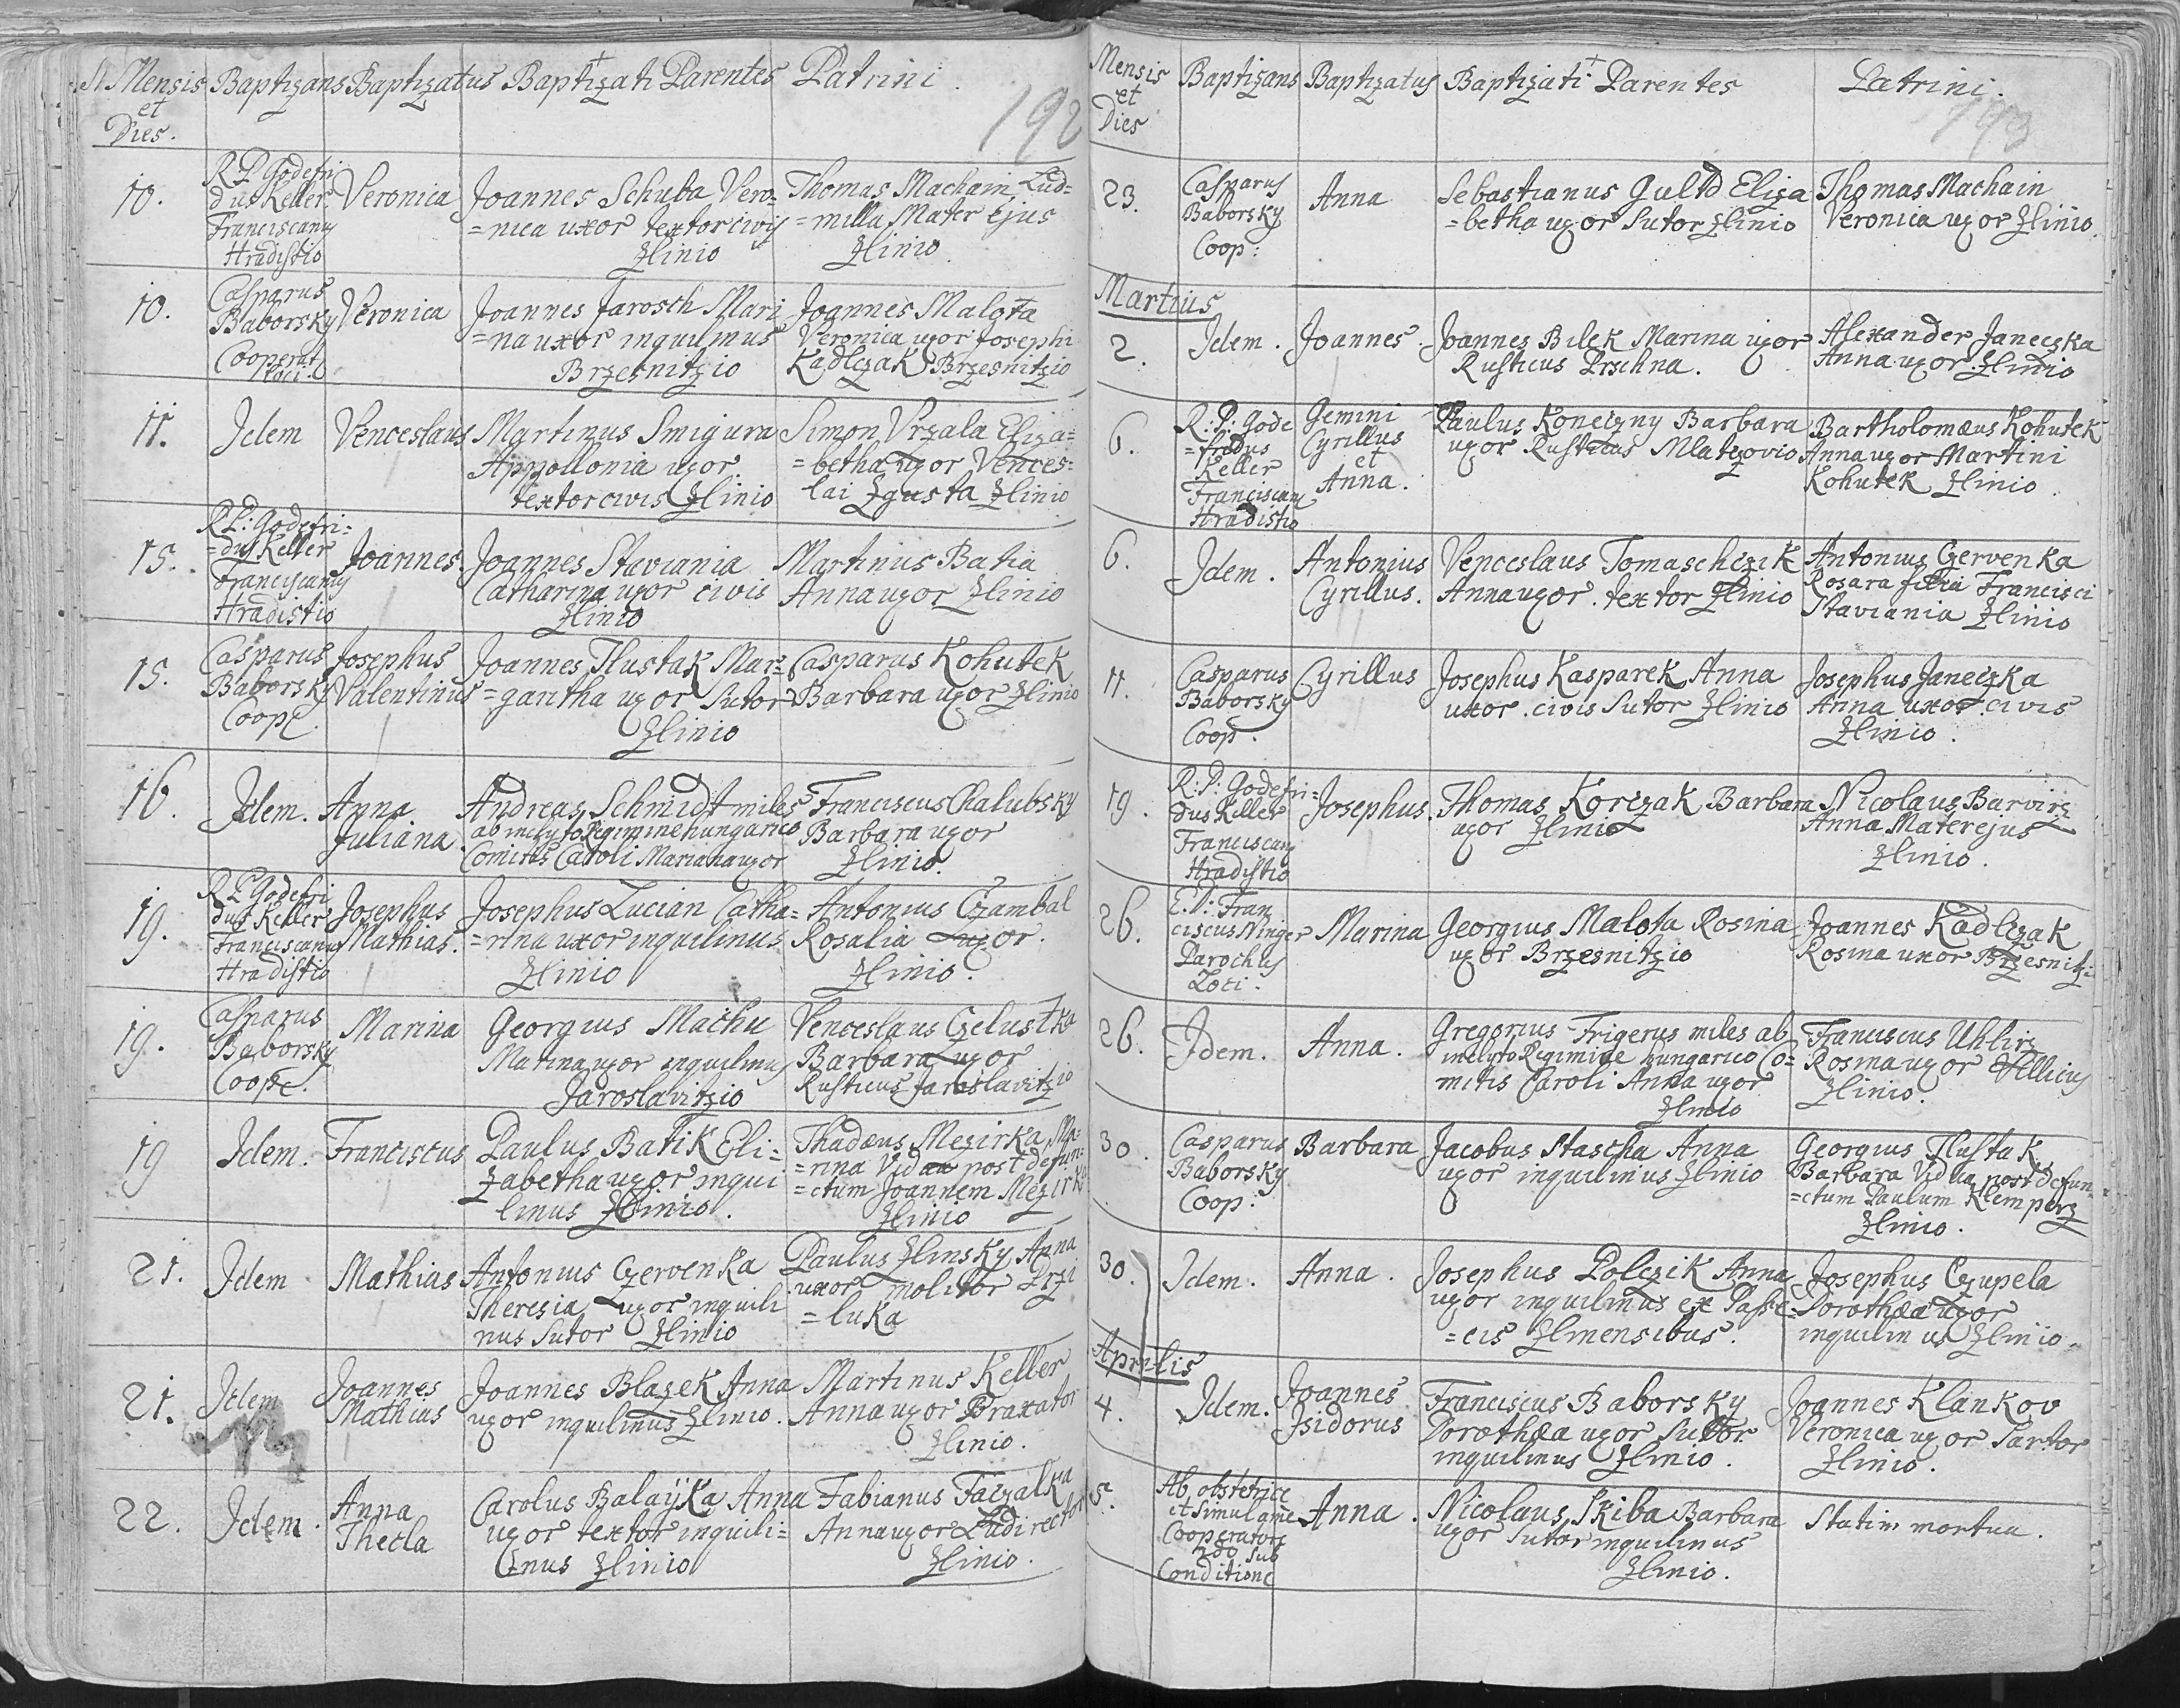 Mensis Baptizans Baptizatus Baptizati Parentes Patrini.
et
Dies.
192
10.
R P Godefri
dus Keller
Franciscanus
Hradistio
Veronica
Joannes Schuba Vero-
=nica uxor textor civis
Zlinio
Thomas Machain Lud=
=milla Mater Ejus
Zlinio.
10.
Casparus
Baborsky
Cooperat
loci.
Veronica
Joannes Jarosch Mari
=na uxor inquilinus
Brzesnitzio
Joannes Malota
Veronica uxor Josephi
Kadlczak Brzesnitzio
11.
Idem
Venceslaus
Martinus Smigura
Appollonia uxor
textor civis Zlinio
Simon Vrzala Eliza=
=betha uxor Vences=
lai Zgusta Zlinio
15.
R P: Godefri=
=dus Keller
Franciscanus
Hradistio
Joannes
Joannes Staviania
Catharina uxor civis
Zlinio
Martinus Batia
Anna uxor Zlinio
15.
Casparus
Baborsky
Coop.
Josephus
Valentinus
Joannes Tlustak Mar=
=garitha uxor Sutor
Zlinio
Casparus Kohutek
Barbara uxor Zlinio
16.
Idem.
Anna
Juliana
Andreas Schmidt miles
ab inclyto Regimine hungarico
Comitis Caroli Mariana uxor
Franciscus Chalubsky
Barbara uxor
Zlinio.
19.
R P Godefri
dus Keller
Franciscanus
Hradistio
Josephus
Mathias.
Josephus Lucian Catha=
=rina uxor inquilinus
Zlinio
Antonius Czambal
Rosalia uxor.
Zlinio.
19.
Casparus
Baborsky
Coop.
Marina
Georgius Machu
Marina uxor inquilinus
Jaroslavitzio
Venceslaus Czelustka
Barbara uxor
Rusticus Jaroslavitzio
19
Idem.
Franciscus
Paulus Batik Eli=
zabetha uxor inqui
linus Zlinio.
Thadæus Mezirka Ma=
=rina Vidua post defun=
=ctum Joannem Mezirka
Zlinio
21.
Idem
Mathias
Antonius Czervenka
Theresia uxor inquili
nus Sutor Zlinio
Paulus Zlinsky Anna
uxor molitor Przi
=luka
21.
Idem
Joannes
Mathias
Joannes Blazek Anna
uxor inquilinus Zlinio.
Martinus Keller
Anna uxor Braxator
Zlinio.
22.
Idem.
Anna
Thecla
Carolus Balaÿka Anna
uxor textor inquili=
nus Zlinio
Fabianus Faczalka
Anna uxor Ludirector
Zlinio.
Mensis Baptizans Baptizatus Baptizati Parentes Patrini.
et
Dies
193
23.
Casparus
Baborsky
Coop:
Anna
Sebastianus Guldd Eliza
=betha uxor Sutor Zlinio
Thomas Machain
Veronica uxor Zlinio.
Martius
2.
Idem.
Joannes.
Joannes Bilek Marina uxor
Rusticus Prschna.
Alexander Janeczka
Anna uxor Zlinio
6.
R: P: Gode
=fridus
Keller
Franciscanus
Hradistio
Gemini
Cyrillus
et
Anna.
Paulus Koneczny Barbara
uxor Rusticus Mlatzovio
Bartholomæus Kohutek
Anna uxor Martini
Kohutek Zlinio.
6.
Idem.
Antonius
Cyrillus.
Venceslaus Tomaschczik
Anna uxor. textor Zlinio
Antonius Czervenka
Rosara filia Francisci
Staviania Zlinio
11.
Casparus
Baborsky
Coop.
Cyrillus
Josephus Kasparek Anna
uxor. civis Sutor Zlinio
Josephus Janeczka
Anna uxor civis
Zlinio.
19.
R: P: Godefri=
dus Keller
Franciscanus
Hradistio
Josephus.
Thomas Korczak Barbara
uxor Zlinio
Nicolaus Barvirz
Anna Mater ejus
Zlinio.
26.
Fran
ciscus Ninger
Parochus
Loci.
Marina
Georgius Malota Rosina
uxor Brzesnitzio
Joannes Kadlczak
Rosina uxor Brzesnitzi=
26.
Idem.
Anna.
Gregorius Frigerus miles ab
inclyto Regimine hungarico Co=
mitis Caroli Anna uxor
Zlinio
Franciscus Uhlirz
Rosina uxor Villicus
Zlinio.
30.
Casparus
Baborsky
Coop:
Barbara
Jacobus Stascha Anna
uxor inquilinus Zlinio
Georgius Tlustak
Barbara Vidua post defun=
=ctum Paulum Klemperz
Zlinio.
30.
Idem.
Anna.
Josephus Polczik Anna
uxor inquilinus ex Passe=
=cis Zlinensibus.
Josephus Czupela
Dorothæa uxor
inquilinus Zlinio.
Aprilis
4.
Idem.
Joannes
Isidorus
Franciscus Baborsky
Dorothæa uxor Sutor
inquilinus Zlinio.
Joannes Klankov
Veronica uxor Sartor
Zlinio.
5.
Ab obstetrice
et simul a me
Cooperatore
sub
Conditione
Anna.
Nicolaus Skiba Barbara
uxor Sutor inquilinus
Zlinio.
Statim mortua.